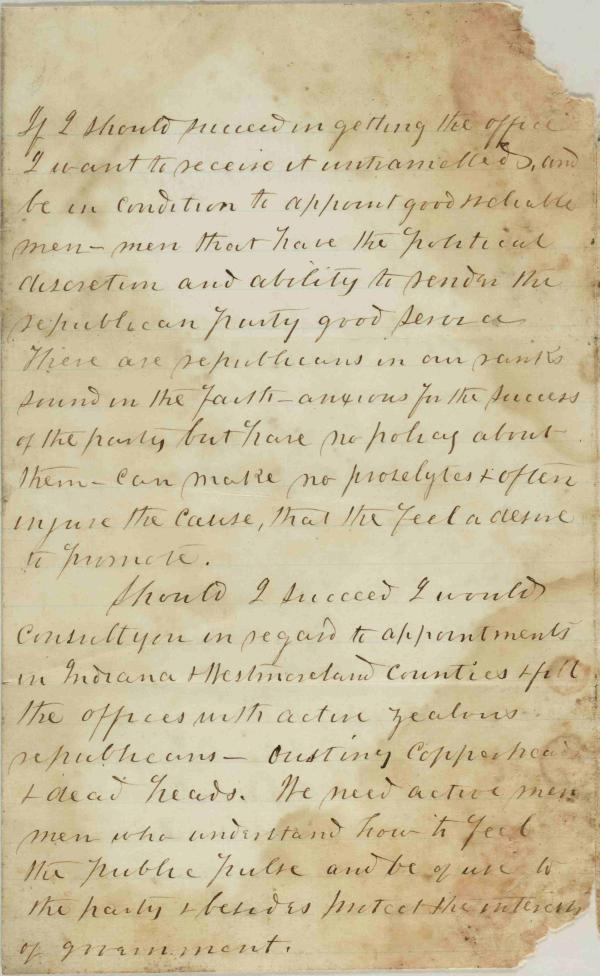 If I should succeed in getting the office
I want to receive it untramelled, and
be in condition to appoint good & reliable
men - men that have the political
discretion and ability to render the
republican party good service
There are republicans in our ranks
sound in the faith - anxious for the success
of the party but have no policy about
them - can make no proselytes & often
injure the cause, that the feel a desire
to promote.
Should I succeed I would
consult you in regard to appointments
in Indiana & Westmoreland Counties & fill
the offices with active zealous
republicans - ousting Copperheads
& dead heads. We need active men
men who understand how to feel
the public pulse and be of use to
the party & besides protect the interests
of government.